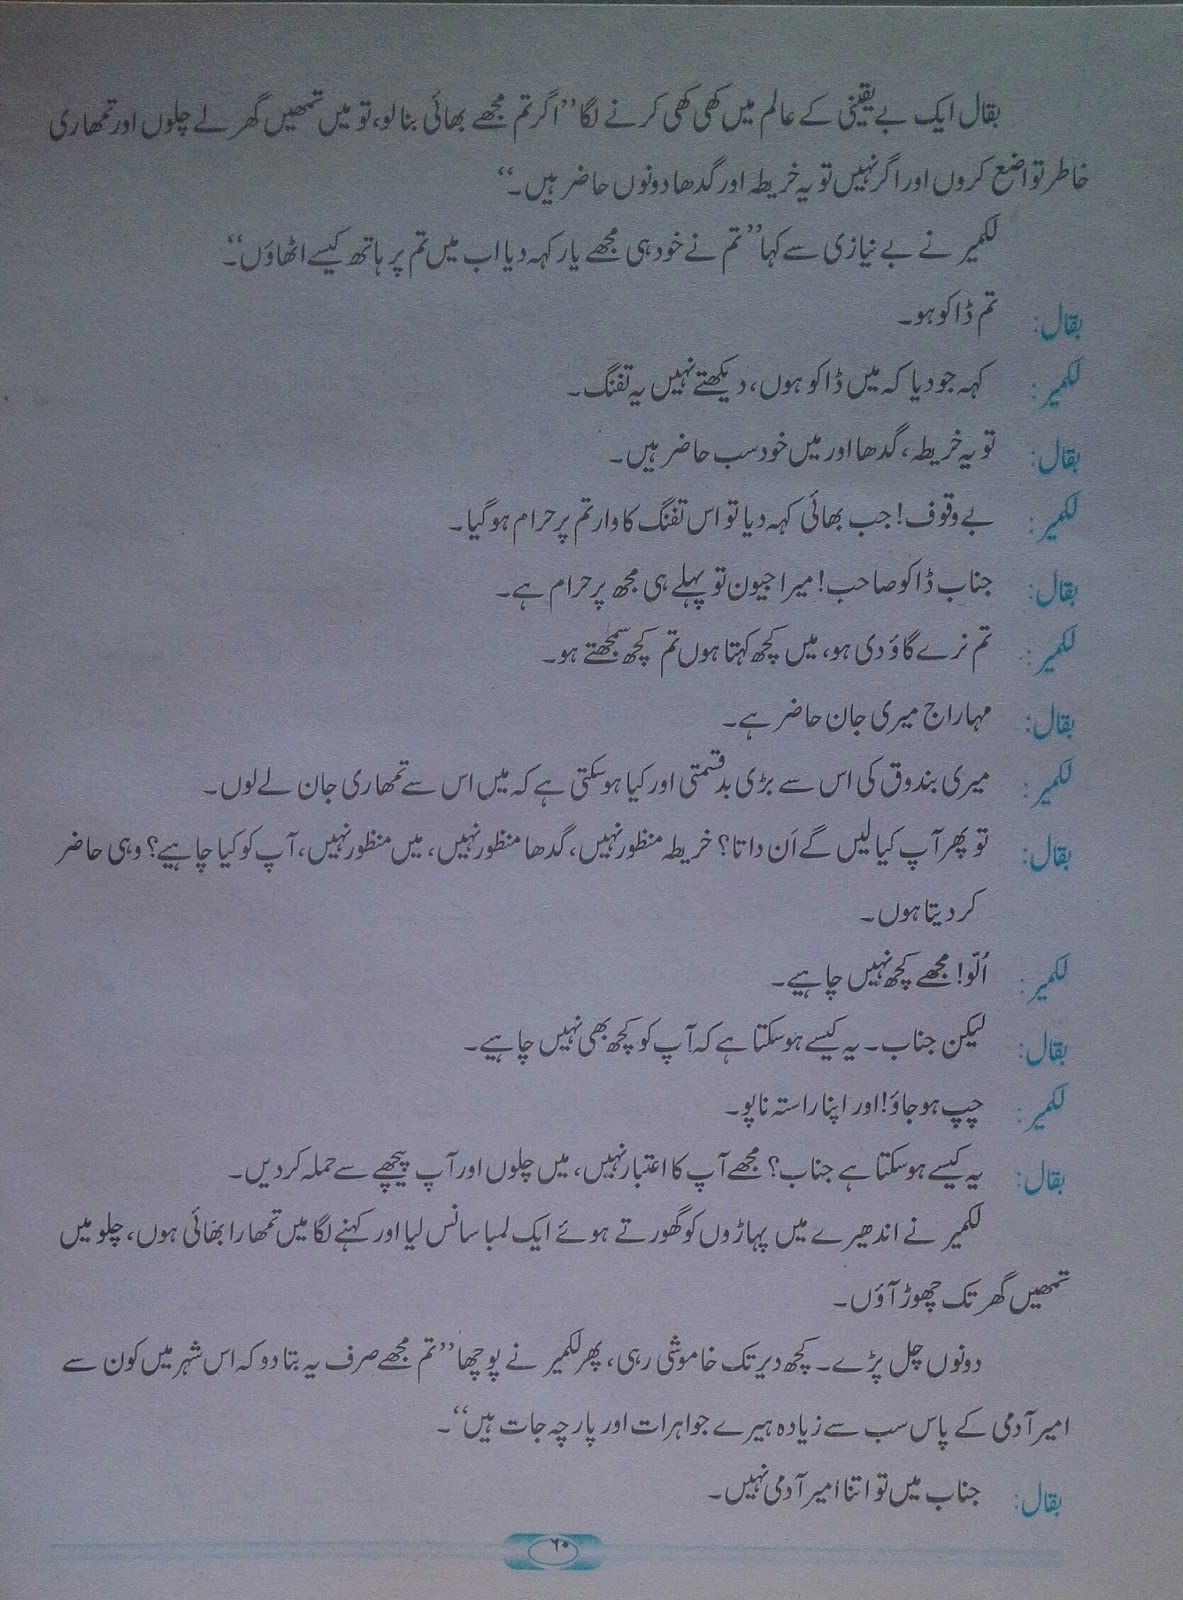 بقال ایک بے یقینی کے عالم میں کھی کھی کرنے لگا ”اگر تم مجھے بھائی بنا لو، تو میں تمھیں گھر لے چلوں اور تمھاری
خاطر تواضع کروں اور اگر نہیں تو یہ خریطہ اور گدھا دونوں حاضر ہیں۔“
لکمیر نے بے نیازی سے کہا ”تم نے خود ہی مجھے یار کہہ دیا اب میں تم پر ہاتھ کیسے اٹھاؤں“۔
بقال: تم ڈاکو ہو۔
لکمیر: کہہ جو دیا کہ میں ڈاکو ہوں، دیکھتے نہیں یہ تفنگ۔
بقال: تو یہ خریطہ، گدھا اور میں خود سب حاضر ہیں۔
لکمیر: بے وقوف! جب بھائی کہہ دیا تو اس تفنگ کا وار تم پر حرام ہو گیا۔
بقال: جناب ڈاکو صاحب! میرا جیون تو پہلے ہی مجھ پر حرام ہے۔
لکمیر: تم نرے گاؤدی ہو، میں کچھ کہتا ہوں تم کچھ سمجھتے ہو۔
بقال: مہاراج میری جان حاضر ہے۔
لکمیر: میری بندوق کی اس سے بڑی بدقسمتی اور کیا ہو سکتی ہے کہ میں اس سے تمھاری جان لے لوں۔
بقال: تو پھر آپ کیا لیں گے اَن داتا؟ خریطہ منظور نہیں، گدھا منظور نہیں، میں منظور نہیں، آپ کو کیا چاہیے؟ وہی حاضر
کر دیتا ہوں۔
لکمیر: اُلّو! مجھے کچھ نہیں چاہیے۔
بقال: لیکن جناب۔ یہ کیسے ہو سکتا ہے کہ آپ کو کچھ بھی نہیں چاہیے۔
لکمیر: چپ ہو جاؤ! اور اپنا راستہ ناپو۔
بقال: یہ کیسے ہو سکتا ہے جناب؟ مجھے آپ کا اعتبار نہیں، میں چلوں اور آپ پیچھے سے حملہ کر دیں۔
لکمیر نے اندھیرے میں پہاڑوں کو گھورتے ہوئے ایک لمبا سانس لیا اور کہنے لگا میں تمھارا بھائی ہوں، چلو میں
تمھیں گھر تک چھوڑ آؤں۔
دونوں چل پڑے۔ کچھ دیر تک خاموشی رہی، پھر لکمیر نے پوچھا ”تم مجھے صرف یہ بتا دو کہ اس شہر میں کون سے
امیر آدمی کے پاس سب سے زیادہ ہیرے جواہرات اور پارچہ جات ہیں“۔
بقال: جناب میں تو اتنا امیر آدمی نہیں۔
۶۰